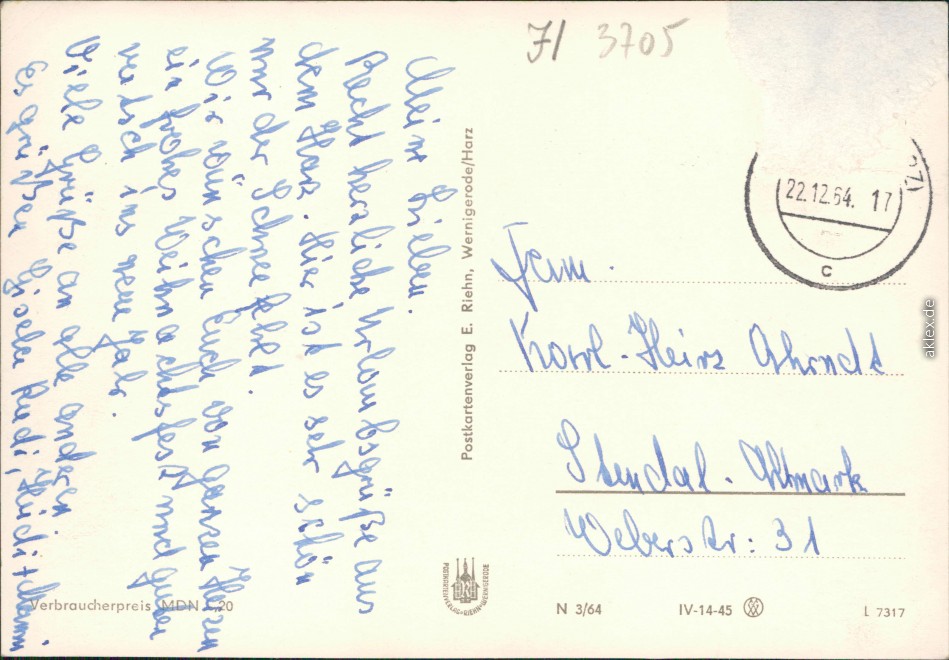 Meine Lieben.
Recht herzliche Urlaubsgrüße aus
dem Harz. Hier ist es sehr schön
nur der Schnee fehlt.
Wir wünschen Euch von ganzen Herzen
ein frohes Weihnachtsfest und guten
rutsch ins neue Jahr.
Viele Grüße an alle anderen
Es grüßen Gisela Rudi, Heidi +
Postkartenverlag E. Riehn, Wernigerode/Harz
71 3705
22.12.64. 17
c
Fam.
Karl-Heinz Ahrndt
Stendal-Altmark
Weberstr: 31
POSTKARTENVERLAG · RIEHN · WERNIGERODE
Verbraucherpreis MDN -,20
N 3/64 IV-14-45 L 7317
aklex.de